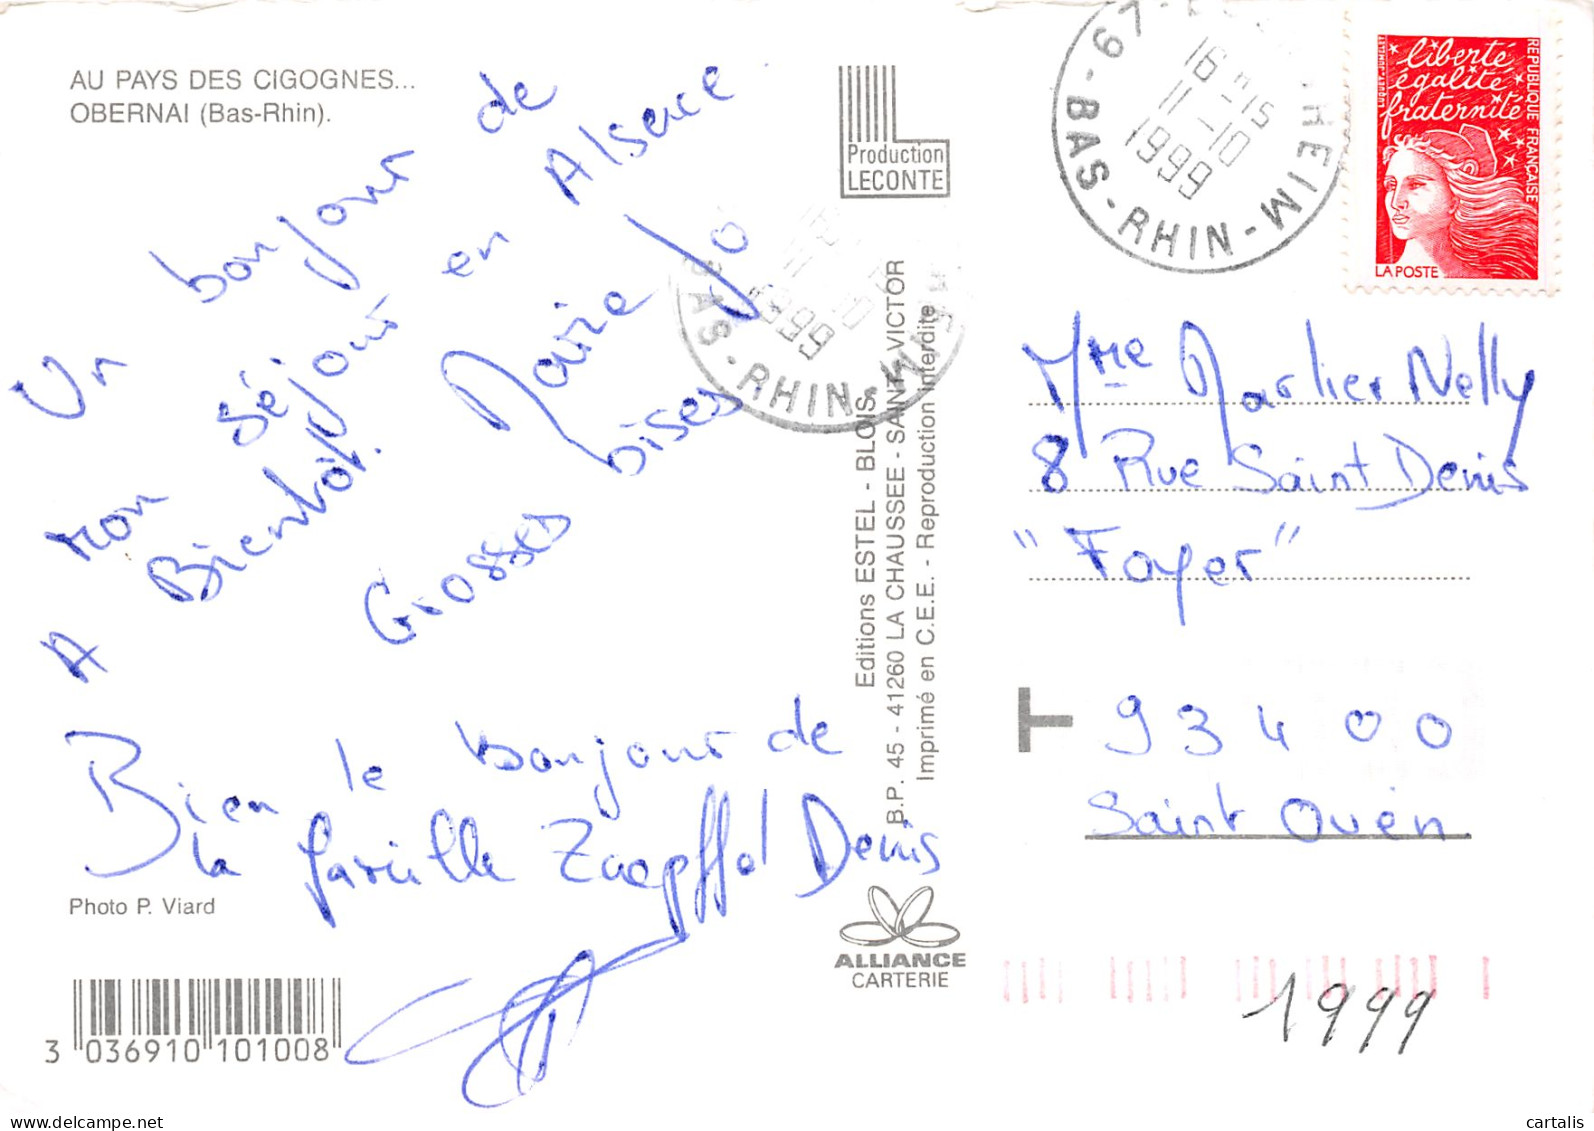 AU PAYS DES CIGOGNES...
OBERNAI (Bas-Rhin).
Un bonjour de
mon séjour en Alsace.
A Bientôt. Marie Jo
Grosses bises
Bien le bonjour de
la famille Zaepffel Denis
Photo P. Viard
3 036910 101008
Production
LECONTE
Editions ESTEL - BLOIS
B.P. 45 - 41260 LA CHAUSSEE - SAINT-VICTOR
Imprimé en C.E.E. - Reproduction interdite
ALLIANCE
CARTERIE
67 - HEIM - BAS-RHIN
16 H 15
11-10
1999
BAS-RHIN
11 10
1999
liberté
égalité
fraternité
REPUBLIQUE FRANÇAISE
LA POSTE
Mme Marlier Nelly
8 Rue Saint Denis
"Foyer"
T 93400
Saint Ouen
1999
www.delcampe.net
cartalis